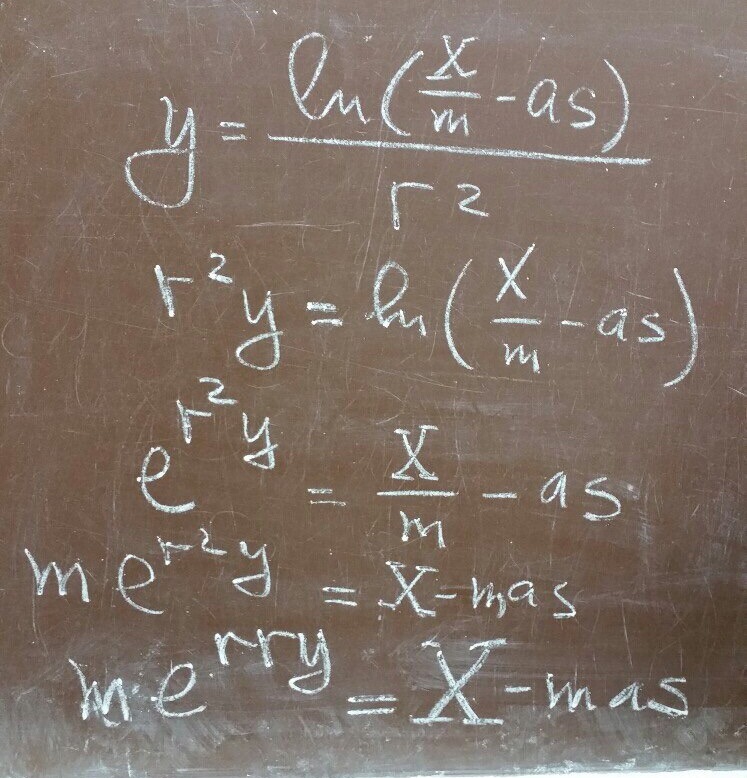 y = ln(x/m - as) / r2
r²y = ln(x/m - as)
e^r²y = X/m - as
me^r²y = X-mas
me^rry = X-mas